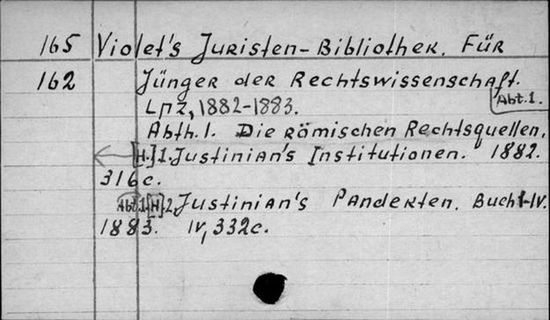 165 Violet's Juristen-Bibliothek. Für
162 Jünger der Rechtswissenschaft.
Abt.1.
Lpz, 1882-1883.
Abth. 1. Die römischen Rechtsquellen.
[H.] 1. Justinian's Institutionen. 1882.
316 c.
Abt.1.[H].2. Justinian's Pandekten. Buch I-IV.
1883. IV, 332 c.